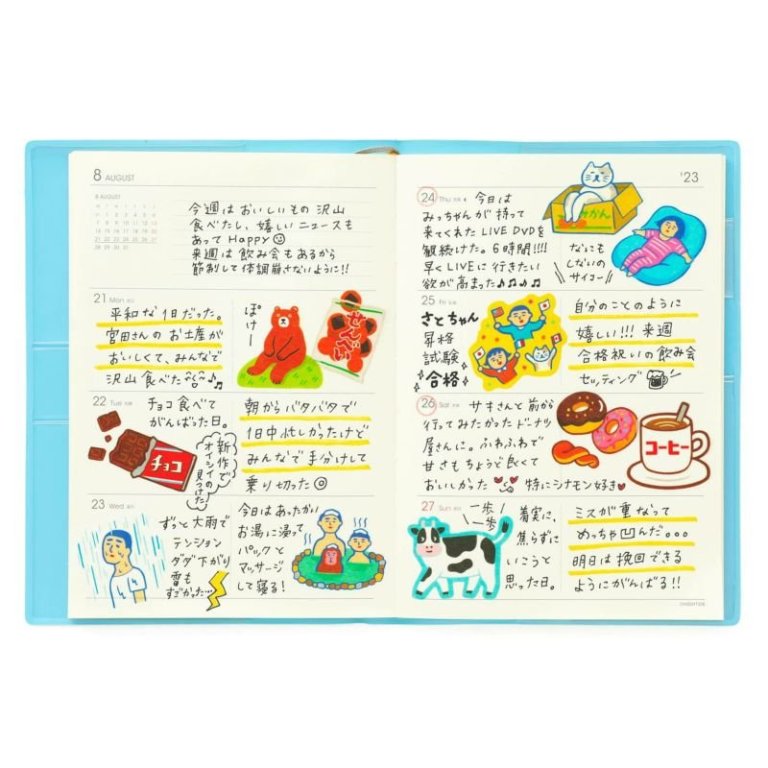 8 AUGUST
8 AUGUST
今週はおいしいもの沢山
食べたい。嬉しいニュースも
あってHappy
来週は飲み会もあるから
節制して体調崩さないように!!
21 Mon
平和な1日だった。
宮田さんのお土産が
おいしくて、みんなで
沢山食べた
ぽけー
せんべい
22 Tue
チョコ食べて
がんばった日。
チョコ
新作で
オイシイの
見つけた
朝からバタバタで
1日中忙しかったけど
みんなで手分けして
乗り切った
23 Wed
ずっと大雨で
テンション
ダダ下がり
雷も
すごかった…
今日はあったかい
お湯に浸って
パックと
マッサージ
して寝る!
'23
24 Thu
今日は
みっちゃんが持って
来てくれたLIVE DVDを
観続けた。6時間!!!!
早くLIVEに行きたい
欲が高まった♪♪♪♪
みかん
なにも
しないの
サイコー
25 Fri
さとちゃん
昇格
試験
合格
自分のことのように
嬉しい!!! 来週
合格祝いの飲み会
セッティング
26 Sat
サキさんと前から
行ってみたかったドーナツ
屋さんに。ふわふわで
甘さもちょうど良くて
おいしかった 特にシナモン好き♥
コーヒー
27 Sun
一歩
一歩
着実に、
焦らずに
いこうと
思った日。
ミスが重なって
めっちゃ凹んだ…
明日は挽回できる
ようにがんばる!!